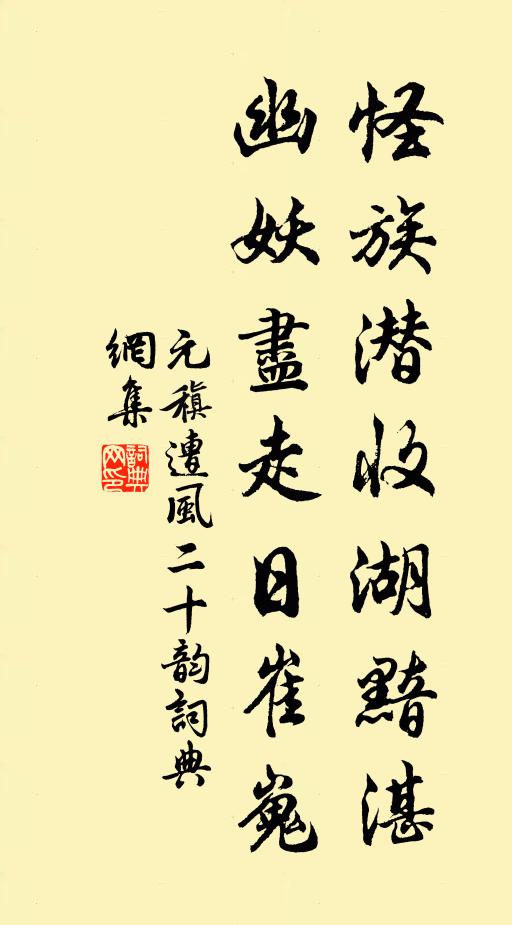 怪族潜收湖黯湛
幽妖盡走日崔嵬
元稹遭風二十韵詞典
網集
詞典
网印